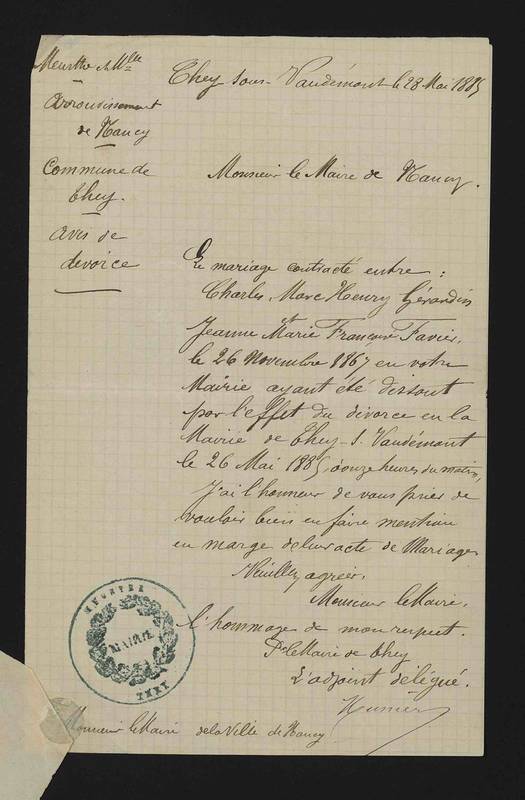 Meurthe & Mlle
Arrondissement
de Nancy
Commune de
They.
Avis de
divorce
They sous Vaudémont le 28 Mai 1885
Monsieur le Maire de Nancy.
Le mariage contracté entre :
Charles Marc Henry Gérardin
et
Jeanne Marie Françoise Favier,
le 26 Novembre 1867 en votre
Mairie ayant été dissout
par l'effet du divorce en la
Mairie de They-s. Vaudémont
le 26 Mai 1885 à onze heures du matin,
J'ai l'honneur de vous prier de
vouloir bien en faire mention
en marge de leur acte de Mariage
Veuillez agréer,
Monsieur le Maire,
l'hommage de mon respect.
Pr le Maire de They
L'adjoint délégué.
MEURTHE
MAIRIE
THEY
Monsieur le Maire de la Ville de Nancy